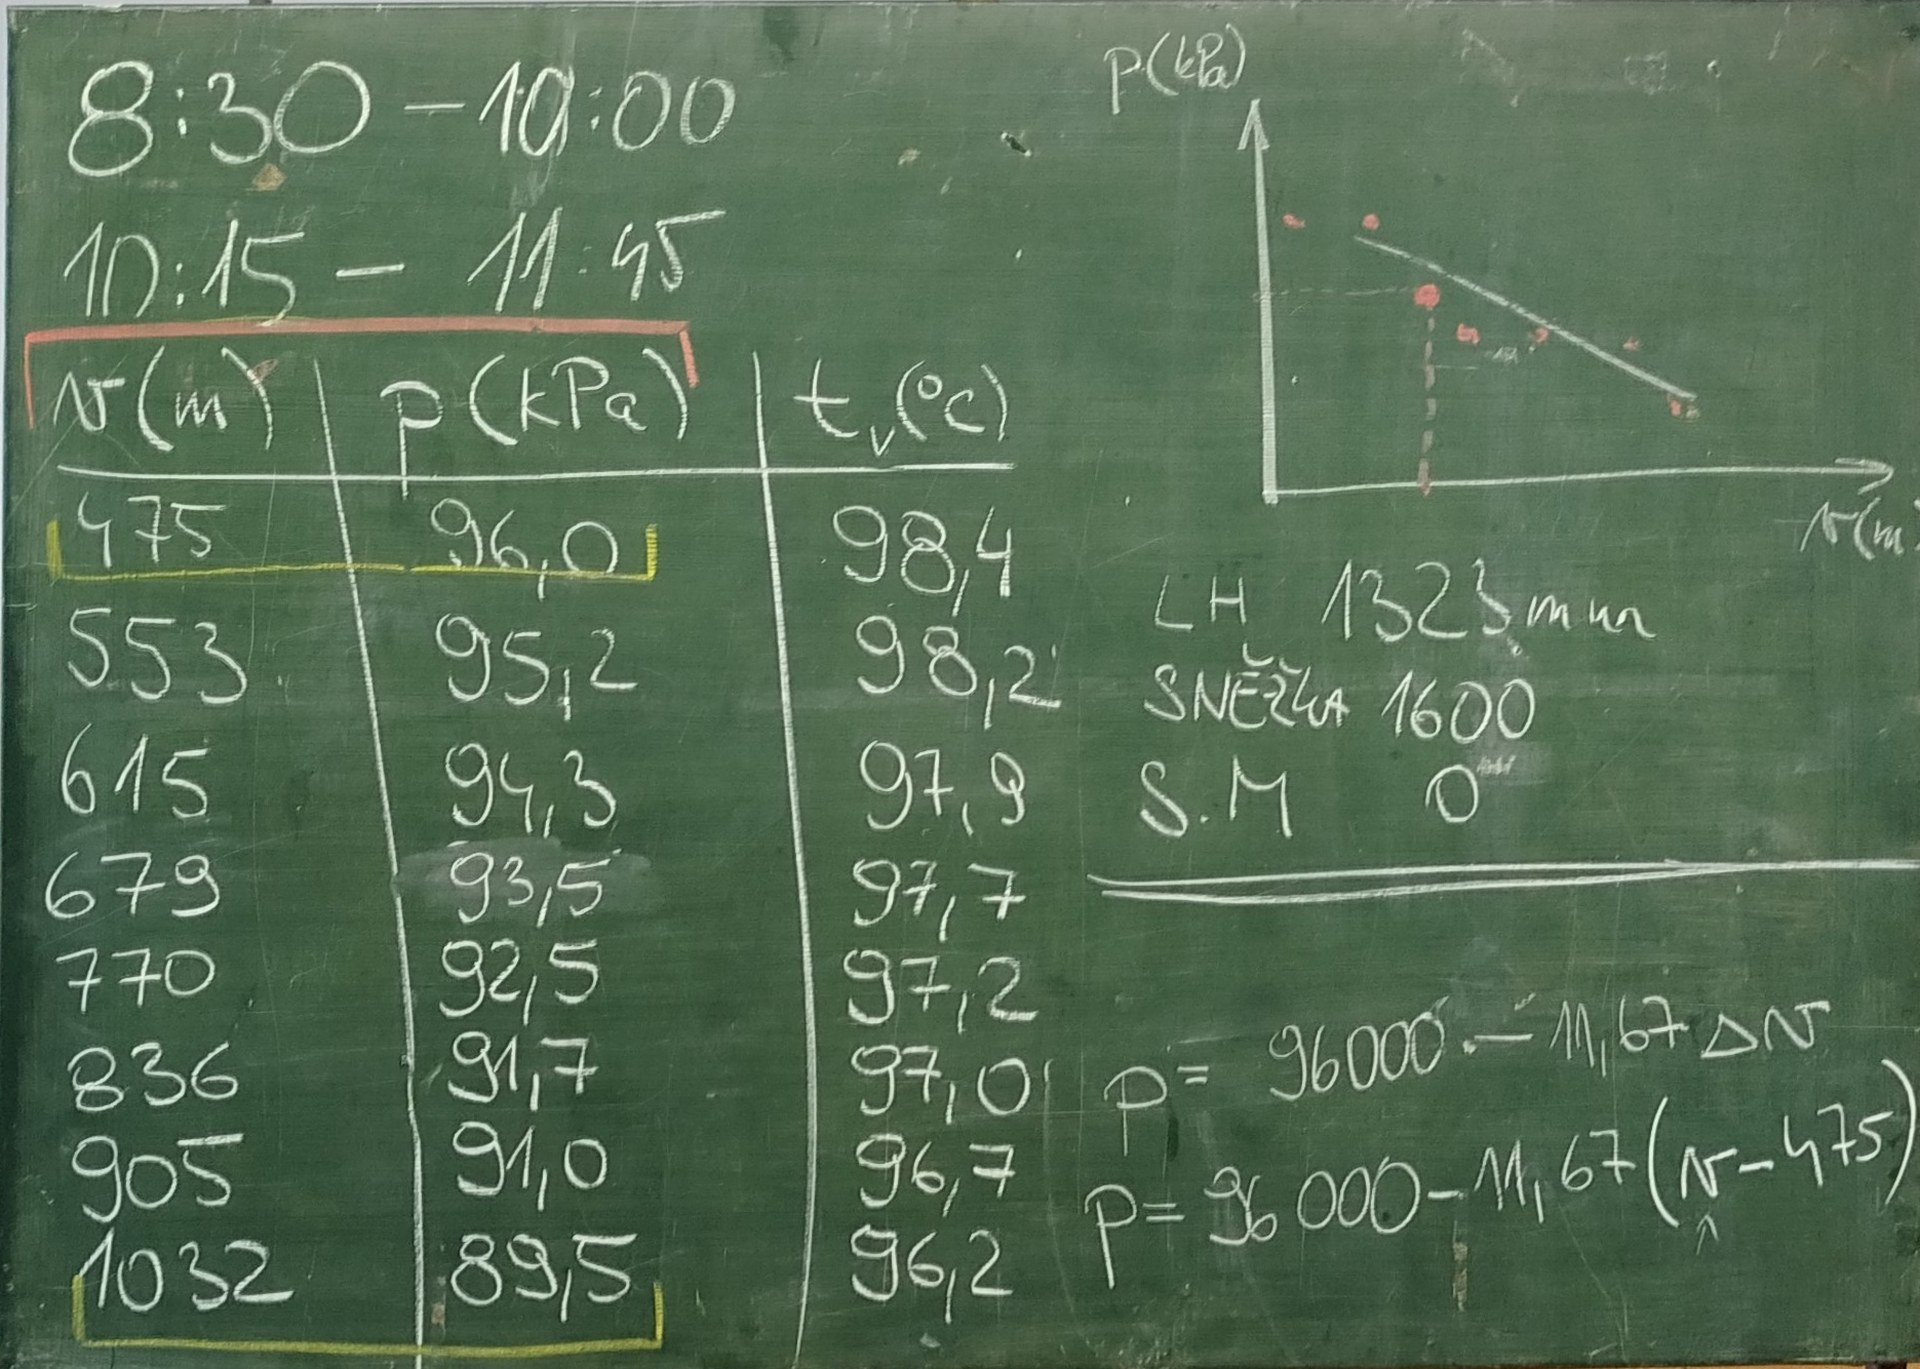 8:30 – 10:00
10:15 – 11:45
v(m) p(kPa) tv(°C)
475 96,0 98,4
553 95,2 98,2
615 94,3 97,9
679 93,5 97,7
770 92,5 97,2
836 91,7 97,0
905 91,0 96,7
1032 89,5 96,2
p(kPa)
v(m)
LH 1323 m
SNĚŽKA 1600
S.M 0
p = 96000 – 11,67 Δv
p = 96 000 – 11,67 (v – 475)